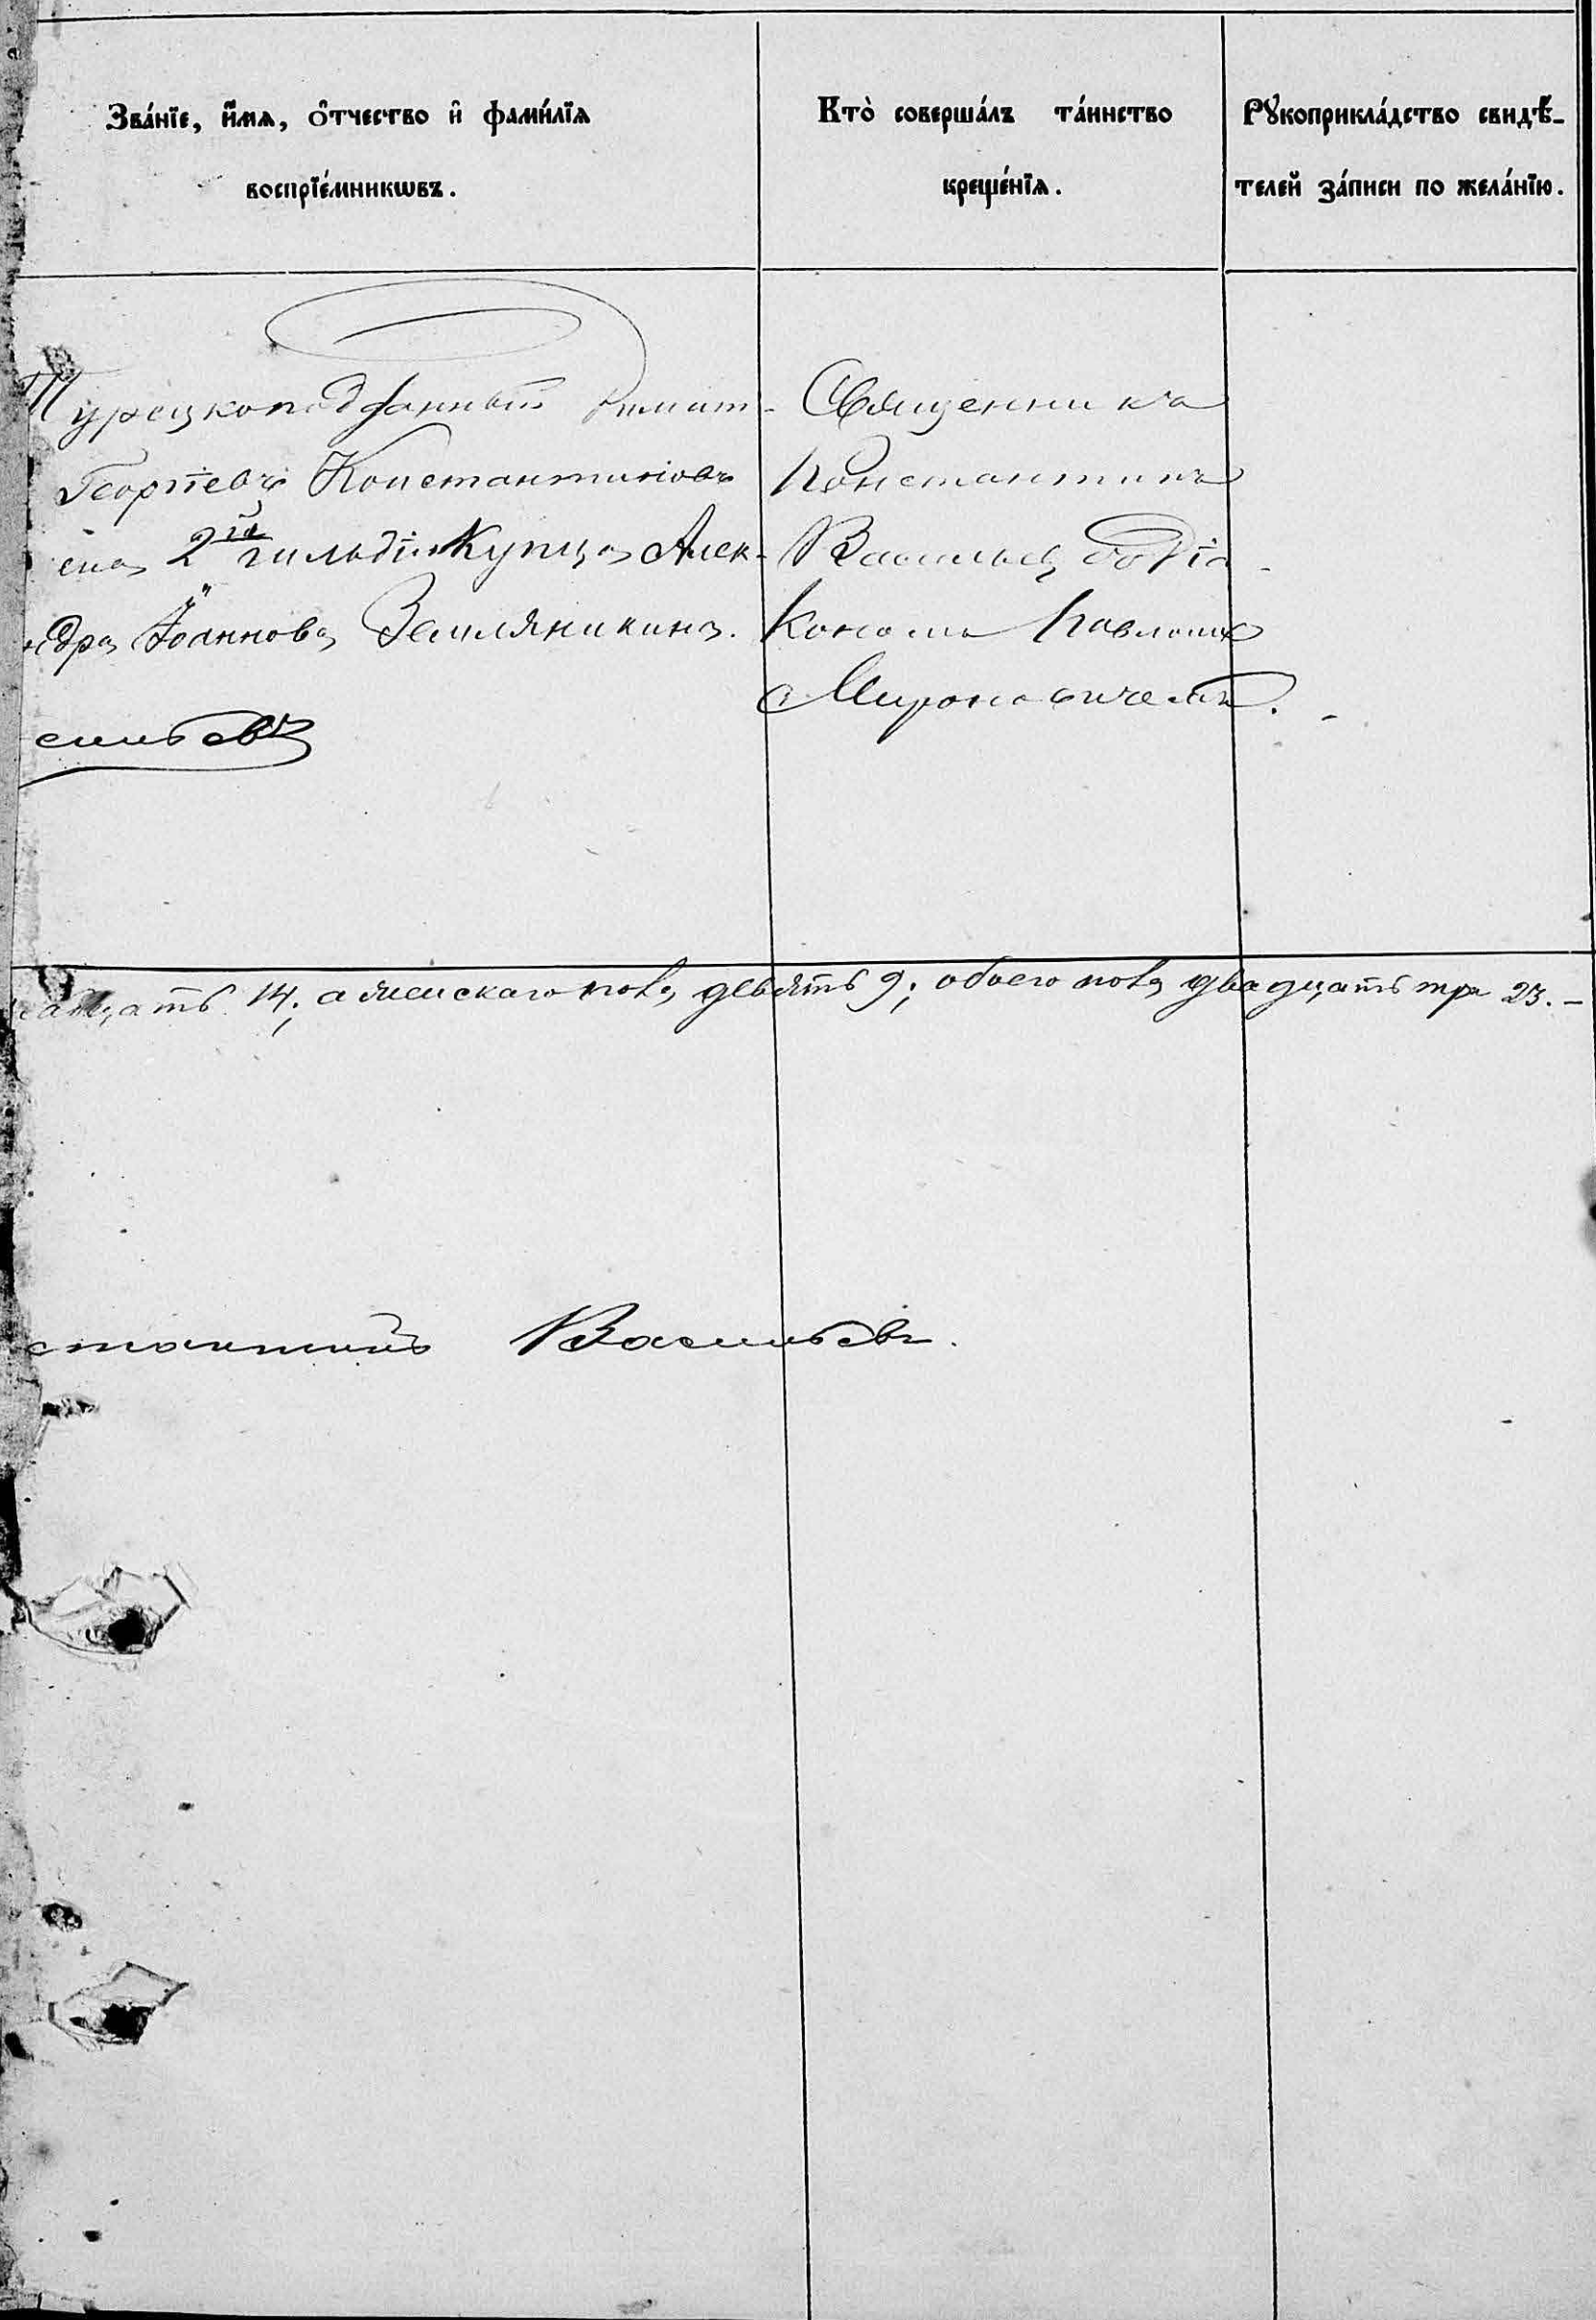 Зва́нїе, и҆́мѧ, ѻ҆́тчество и҆ фами́лїѧ
воспрїе́мникѡвъ.
Кто̀ соверша́лъ та́инство
креще́нїѧ.
Рꙋкоприкла́дство свидѣ́-
телей за́писи по жела́нїю.
Турецкоподданный Димит-
Георгіевъ Константиновъ
2й гильдіи Купца Алек-
ндра Іоаннова Земляникина.
сильевъ
Священникъ
Константинъ
Васильевъ съ діа-
кономъ Павломъ
Мироновичемъ.
надцать 14; а женскаго пола девять 9; обоего пола двадцать три 23. –
стантинъ Васильевъ.